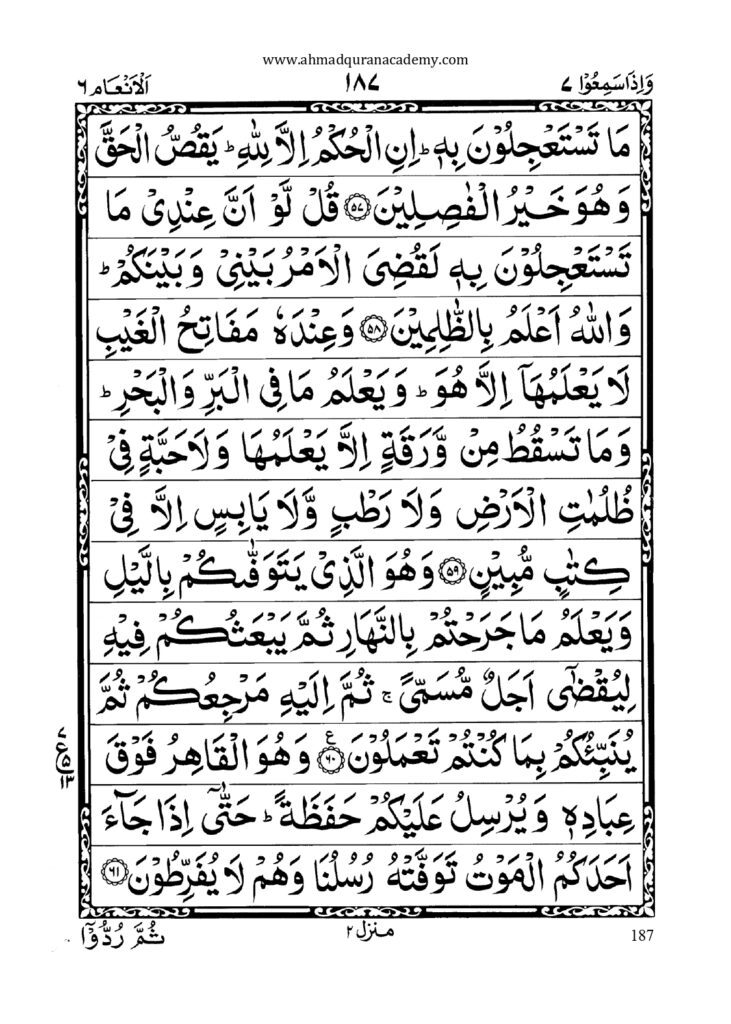 www.ahmadquranacademy.com
وَاِذَاسَمِعُوْا ٧ ١٨٧ اَلْاَنْعَام ٦
مَا تَسْتَعْجِلُوْنَ بِهٖ ؕ اِنِ الْحُكْمُ اِلَّا لِلّٰهِ ؕ يَقُصُّ الْحَقَّ
وَهُوَ خَيْرُ الْفٰصِلِيْنَ ۝٥٧ قُلْ لَّوْ اَنَّ عِنْدِىْ مَا
تَسْتَعْجِلُوْنَ بِهٖ لَقُضِىَ الْاَمْرُ بَيْنِىْ وَبَيْنَكُمْ ؕ
وَاللّٰهُ اَعْلَمُ بِالظّٰلِمِيْنَ ۝٥٨ وَعِنْدَهٗ مَفَاتِحُ الْغَيْبِ
لَا يَعْلَمُهَاۤ اِلَّا هُوَ ؕ وَيَعْلَمُ مَا فِى الْبَرِّ وَالْبَحْرِ ؕ
وَمَا تَسْقُطُ مِنْ وَّرَقَةٍ اِلَّا يَعْلَمُهَا وَلَا حَبَّةٍ فِىْ
ظُلُمٰتِ الْاَرْضِ وَلَا رَطْبٍ وَّلَا يَابِسٍ اِلَّا فِىْ
كِتٰبٍ مُّبِيْنٍ ۝٥٩ وَهُوَ الَّذِىْ يَتَوَفّٰٮكُمْ بِالَّيْلِ
وَيَعْلَمُ مَا جَرَحْتُمْ بِالنَّهَارِ ثُمَّ يَبْعَثُكُمْ فِيْهِ
لِيُقْضٰٓى اَجَلٌ مُّسَمًّى ۚ ثُمَّ اِلَيْهِ مَرْجِعُكُمْ ثُمَّ
يُنَبِّئُكُمْ بِمَا كُنْتُمْ تَعْمَلُوْنَ ۝٦٠ ع وَهُوَ الْقَاهِرُ فَوْقَ
٧ ع ٥ ١٣
عِبَادِهٖ وَيُرْسِلُ عَلَيْكُمْ حَفَظَةً ؕ حَتّٰٓى اِذَا جَآءَ
اَحَدَكُمُ الْمَوْتُ تَوَفَّتْهُ رُسُلُنَا وَهُمْ لَا يُفَرِّطُوْنَ ۝٦١
187 منزل ٢ ثُمَّ رُدُّوْۤا